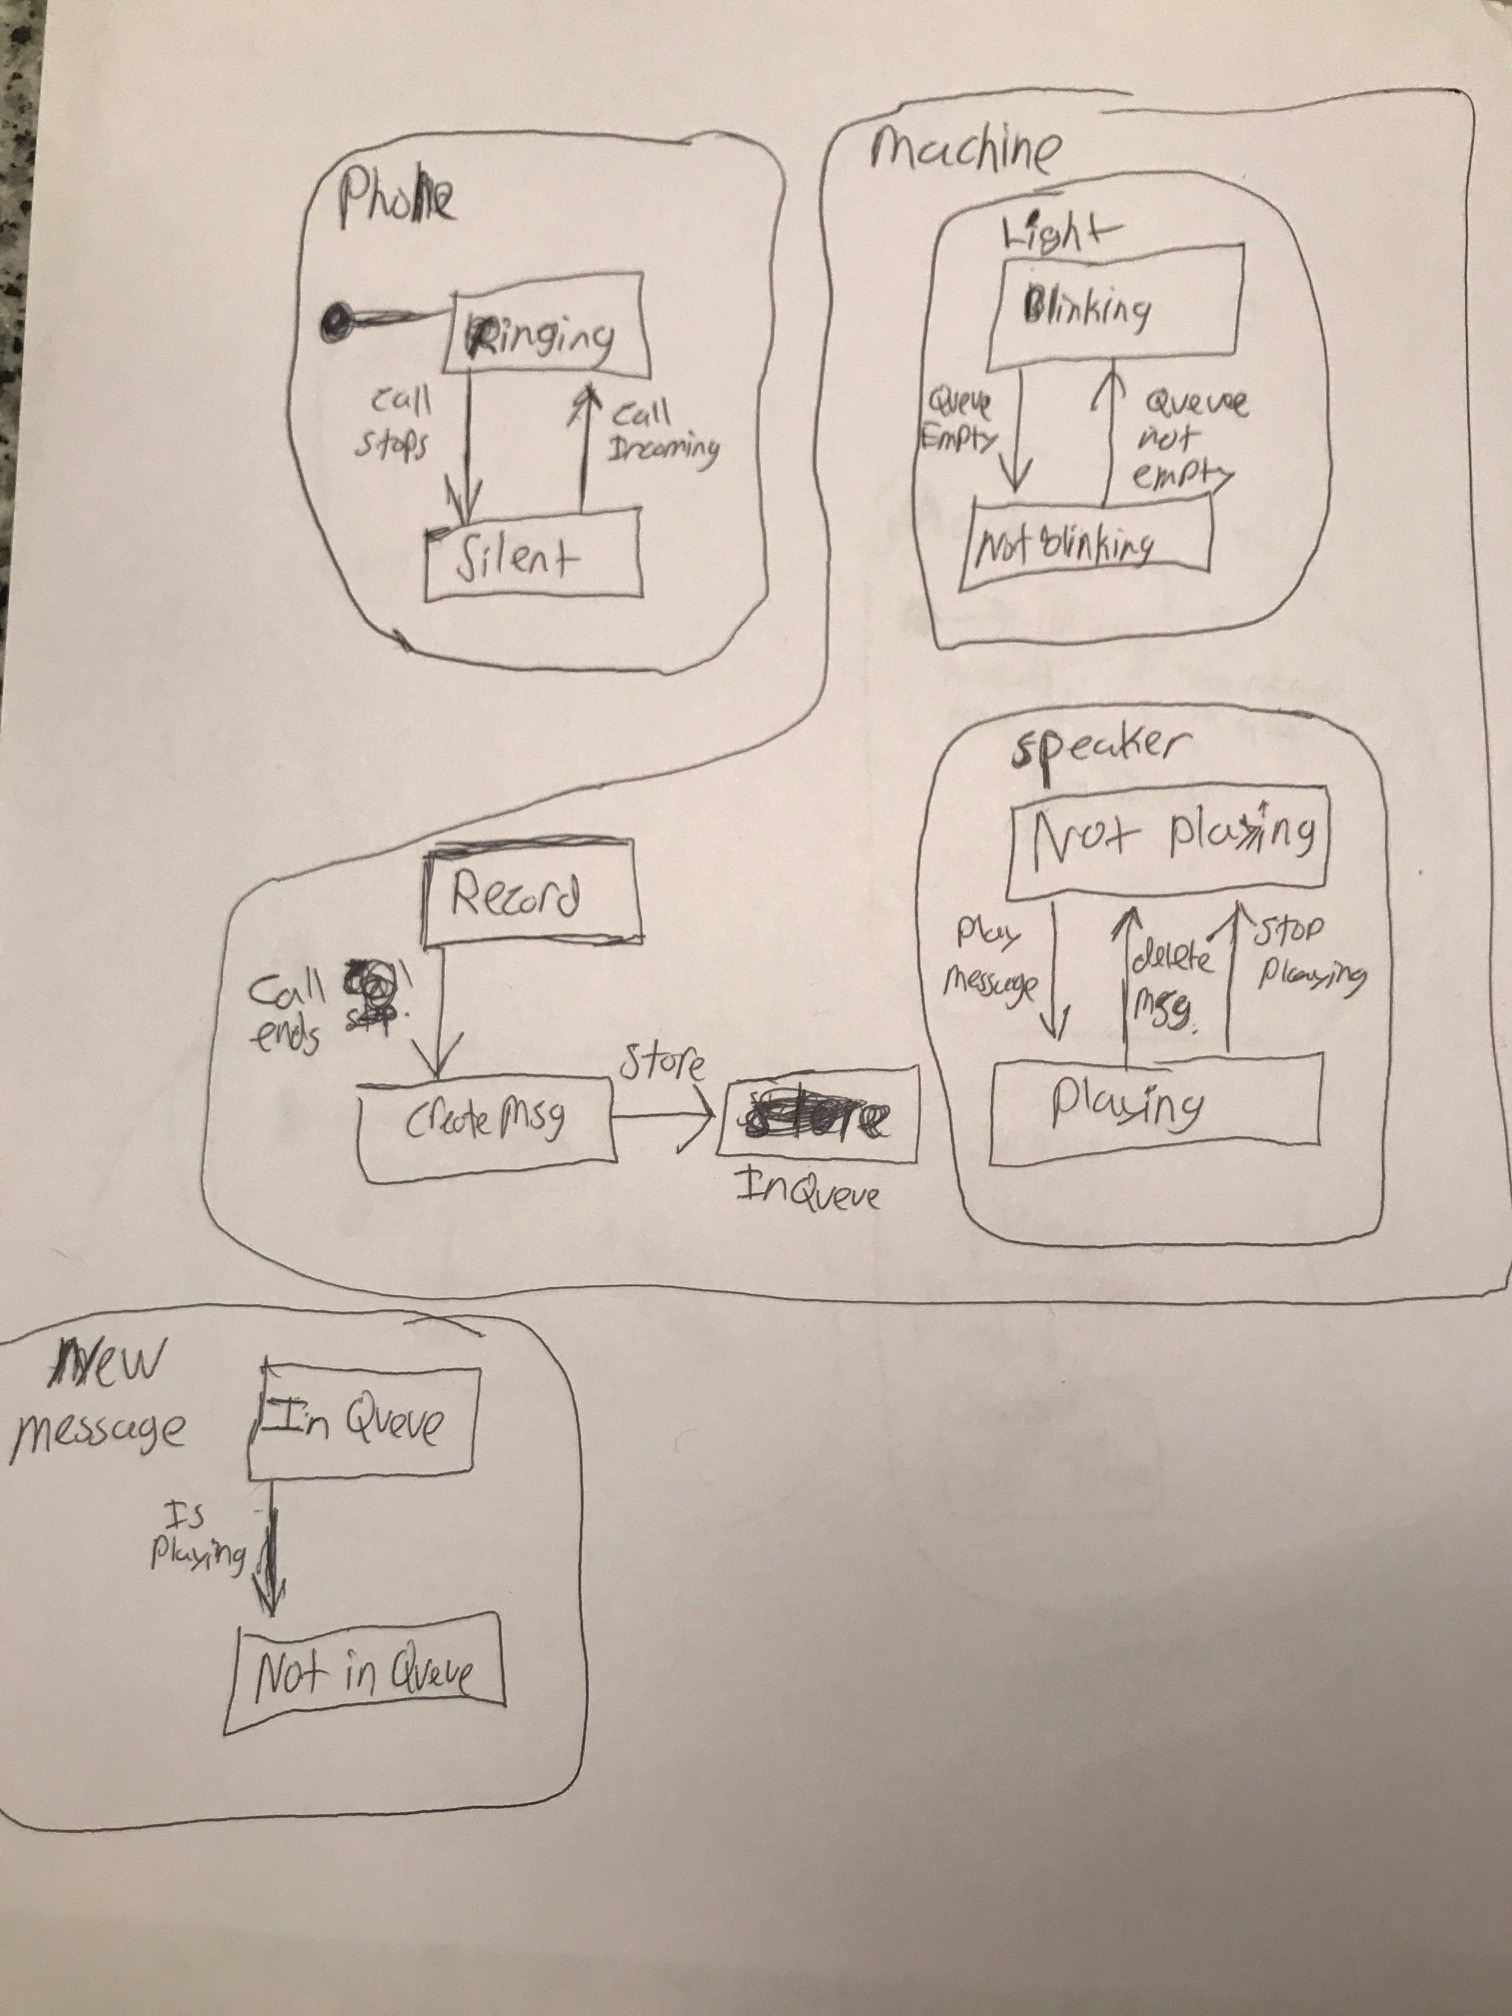 Phone
Ringing
Call
stops
Call
Incoming
Silent
Machine
Light
Blinking
Queue
Empty
Queue
not
empty
Not Blinking
Speaker
Not playing
Play
Message
delete
Msg.
Stop
Playing
Playing
Record
Call
ends
Create Msg
Store
In Queue
New
Message
In Queue
Is
Playing
Not in Queue